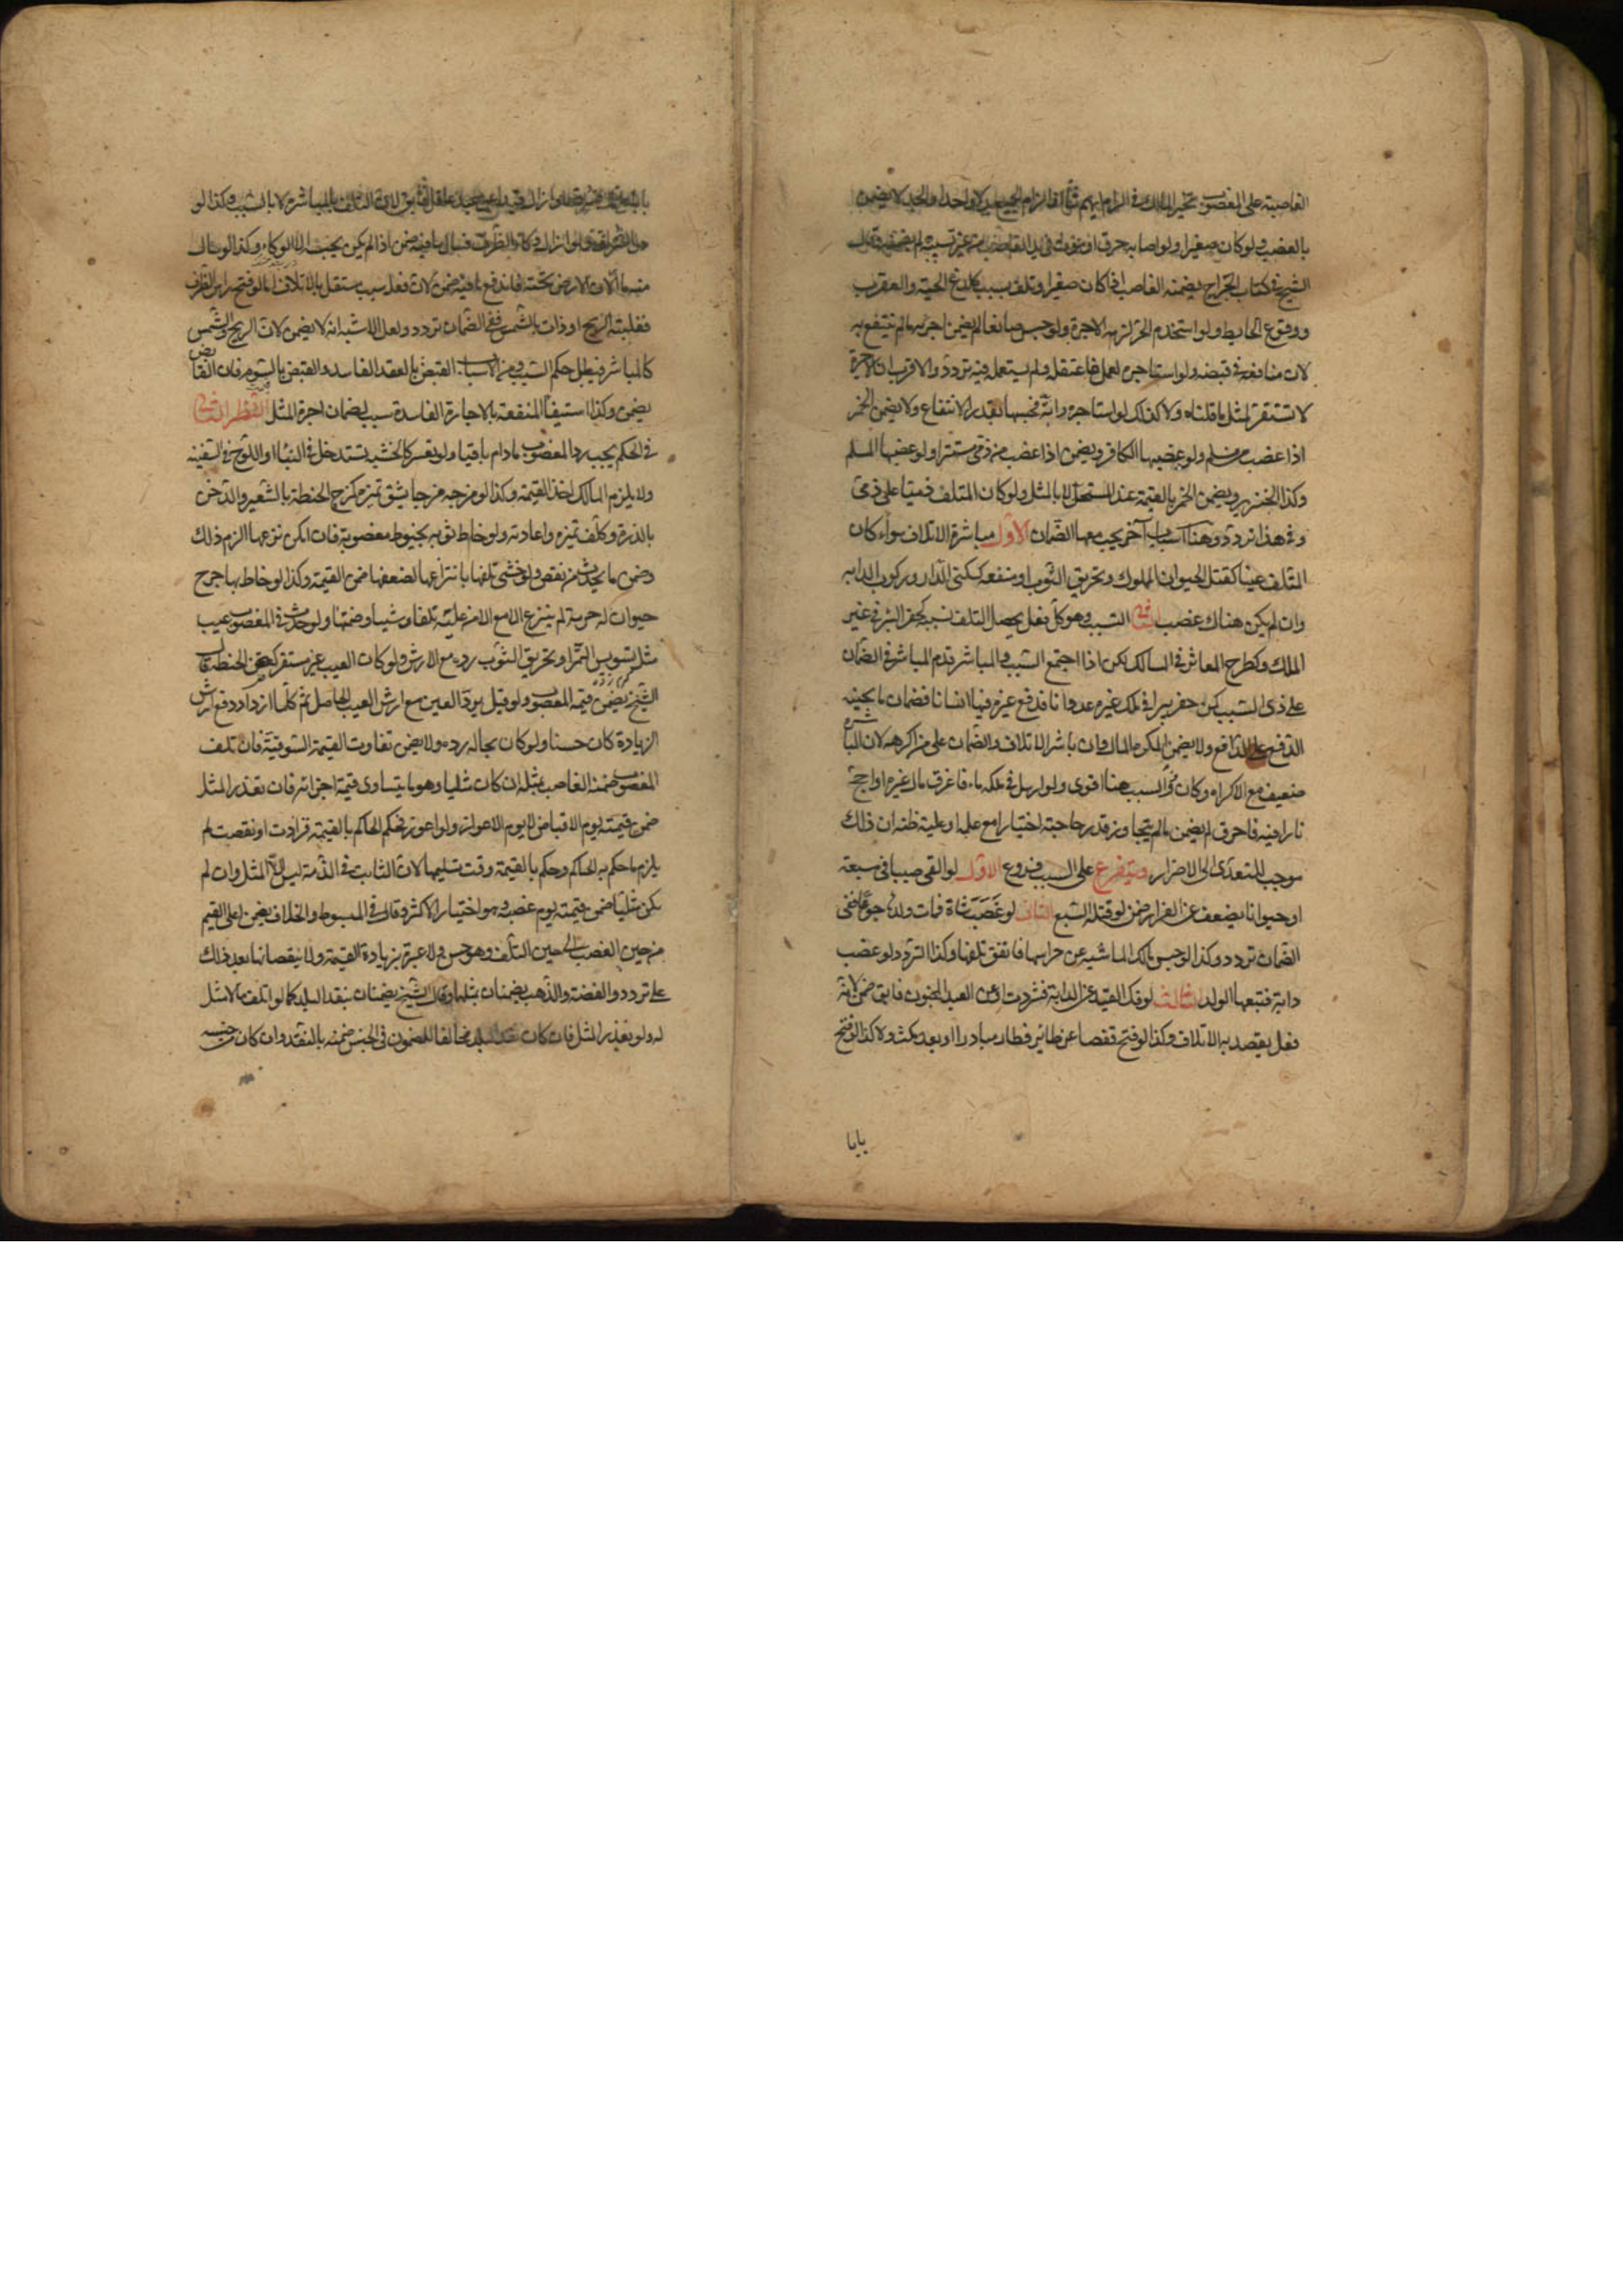 الغاصبة على المغصوب تخير المالك فى الزام ايهم شا او الزام الجميع بدلا واحدا والحر لا يضمن
بالغصب ولو كان صغيرا ولو اصابه حرق او غرق او موت فى يد الغاصب من غير تسبيبه لم يضمنه وقال
الشيخ فى كتاب الجراح يضمنه الغاصب اذا كان صغيرا وتلف بسبب كلدغ الحية والعقرب
ووقوع الحايط ولو استخدم الحر لزمه الاجرة ولو حبس صانعا لم يضمن اجرته ما لم ينتفع به
لان منافعه فى قبضته ولو استاجره لعمل فاعتقله ولم يستعمله فيه تردد والاقرب ان الاجرة
لا تستقر لمثل ما قلناه ولا كذلك لو استاجر دابة فحبسها بقدر الانتفاع ولا يضمن الخمر
اذا غصب من مسلم ولو غصبها الكافر ويضمن اذا غصب من ذمى مستترا ولو غصبها المسلم
وكذا الخنزير ويضمن الخمر بالقيمة عند المستحل لا بالمثل ولو كان المتلف ذميا على ذمى
وفى هذا تردد وهنا اسباب آخر يجب معها الضمان الاول مباشرة الاتلاف سواء كان
المتلف عينا كقتل الحيوان المملوك وتخريق الثوب او منفعه كسكنى الدار وركوب الدابه
وان لم يكن هناك غصب الثانى التسبب وهو كل فعل يحصل التلف بسببه كحفر البئر فى غير
الملك وكطرح المعاثر فى المسالك لكن اذا اجتمع السبب والمباشر قدم المباشر فى الضمان
على ذى السبب كمن حفر بيرا فى ملك غيره عدوانا فدفع غيره فيها انسانا فضمان ما يجنيه
الدفع على الدافع ولا يضمن المكره المال وان باشر الاتلاف والضمان على من اكرهه لان المباشرة
ضعيف مع الاكراه وكان ذو السبب هنا اقوى ولو ارسل فى ملكه ماء فاغرق مال غيره او اجج
نارا فيه فاحرق لم يضمن ما لم يتجاوز قدر حاجته اختيارا مع علمه او غلبة ظنه ان ذلك
موجب للتعدى الى الاضرار ويتفرع على السبب فروع الاول لو القى صبيا فى مسبعة
او حيوانا يضعف عن الفرار ضمن لو قتله السبع الثانى لو غصب شاة فمات ولدها جوعا ففى
الضمان تردد وكذا لو حبس مالك الماشيه عن حراستها فاتفق تلفها وكذا التردد لو غصب
دابة فتبعها الولد الثالث لو فك القيد عن الدابة فشردت او عن العبد المجنون فابق ضمن لانه
فعل يقصد به الاتلاف وكذا لو فتح قفصا عن طائر فطار مبادرا او بعد مكث ولا كذا لو فتح
بابا
بابا على مال فسرق او ازال قيدا عن عبد عاقل فابق لان التلف بالمباشره لا بالسبب وكذا لو
دل السراق ولو ازال وكاء الظرف فسال ما فيه ضمن اذا لم يكن يحبسه الا الوكاء وكذا لو سال
منه ما الان الارض تحته فاندفع ما فيه ضمن لان فعله سبب مستقل بالاتلاف اما لو فتح راس الظرف
فقلبته الريح او ذاب بالشمس ففى الضمان تردد ولعل الاشبه انه لا يضمن لان الريح والشمس
كالمباشر فيبطل حكم السبب ومن الاسباب القبض بالعقد الفاسد والقبض بالسوم فان القابض
يضمن وكذا استيفاً المنفعه بالاجارة الفاسدة سبب لضمان اجرة المثل النظر الثانى
فى الحكم يجب رد المغصوب ما دام باقيا ولو تعسر كالخشبه تستدخل فى البناء او اللوح فى السفينه
ولا يلزم المالك اخذ القيمة وكذا لو مزجه مزجا يشق تميزه كمزج الحنطة بالشعير والدخن
بالذرة وكلف تميزه واعادته ولو خاط ثوبه بخيوط مغصوبة فان امكن نزعها الزم ذلك
وضمن ما يحدث من نقص ولو خشى تلفها بانتزاعها لضعفها ضمن القيمة وكذا لو خاط بها جرح
حيوان له حرمة لم ينزع الا مع الامن عليه تلفا وشينا وضمنها ولو حدث فى المغصوب عيب
مثل تسويس التمر او تخريق الثوب رده مع الارش ولو كان العيب غير مستقر كعفن الحنطة قال
الشيخ يضمن قيمة المغصوب ولو قيل يرد العين مع ارش العيب الحاصل ثم كلما ازداد دفع ارش
الزيادة كان حسنا ولو كان بحاله رده ولا يضمن تفاوت القيمة السوقية فان تلف
المغصوب ضمنه الغاصب بمثله ان كان مثليا وهو ما يتساوى قيمة اجزائه فان تعذر المثل
ضمن قيمته يوم الاقباض لا يوم الاعواز ولو اعوز فحكم الحاكم بالقيمة فزادت او نقصت لم
يلزم ما حكم به الحاكم وحكم بالقيمة وقت تسليمها لان الثابت فى الذمة ليس الا المثل وان لم
يكن مثليا ضمن قيمته يوم غصبه وهو اختيار الاكثر وقال فى المبسوط والخلاف يضمن اعلى القيم
من حين الغصب الى حين التلف وهو حسن ولا عبرة بزيادة القيمة ولا بنقصانها بعد ذلك
على تردد والفضة والذهب يضمنان بمثلهما وقال الشيخ يضمنان بنقد البلد كما لو اتلف ما لا مثل
له ولو تعذر المثل فان كان نقد البلد مخالفا للمضمون فى الجنس ضمنه بالنقد وان كان من جنسه